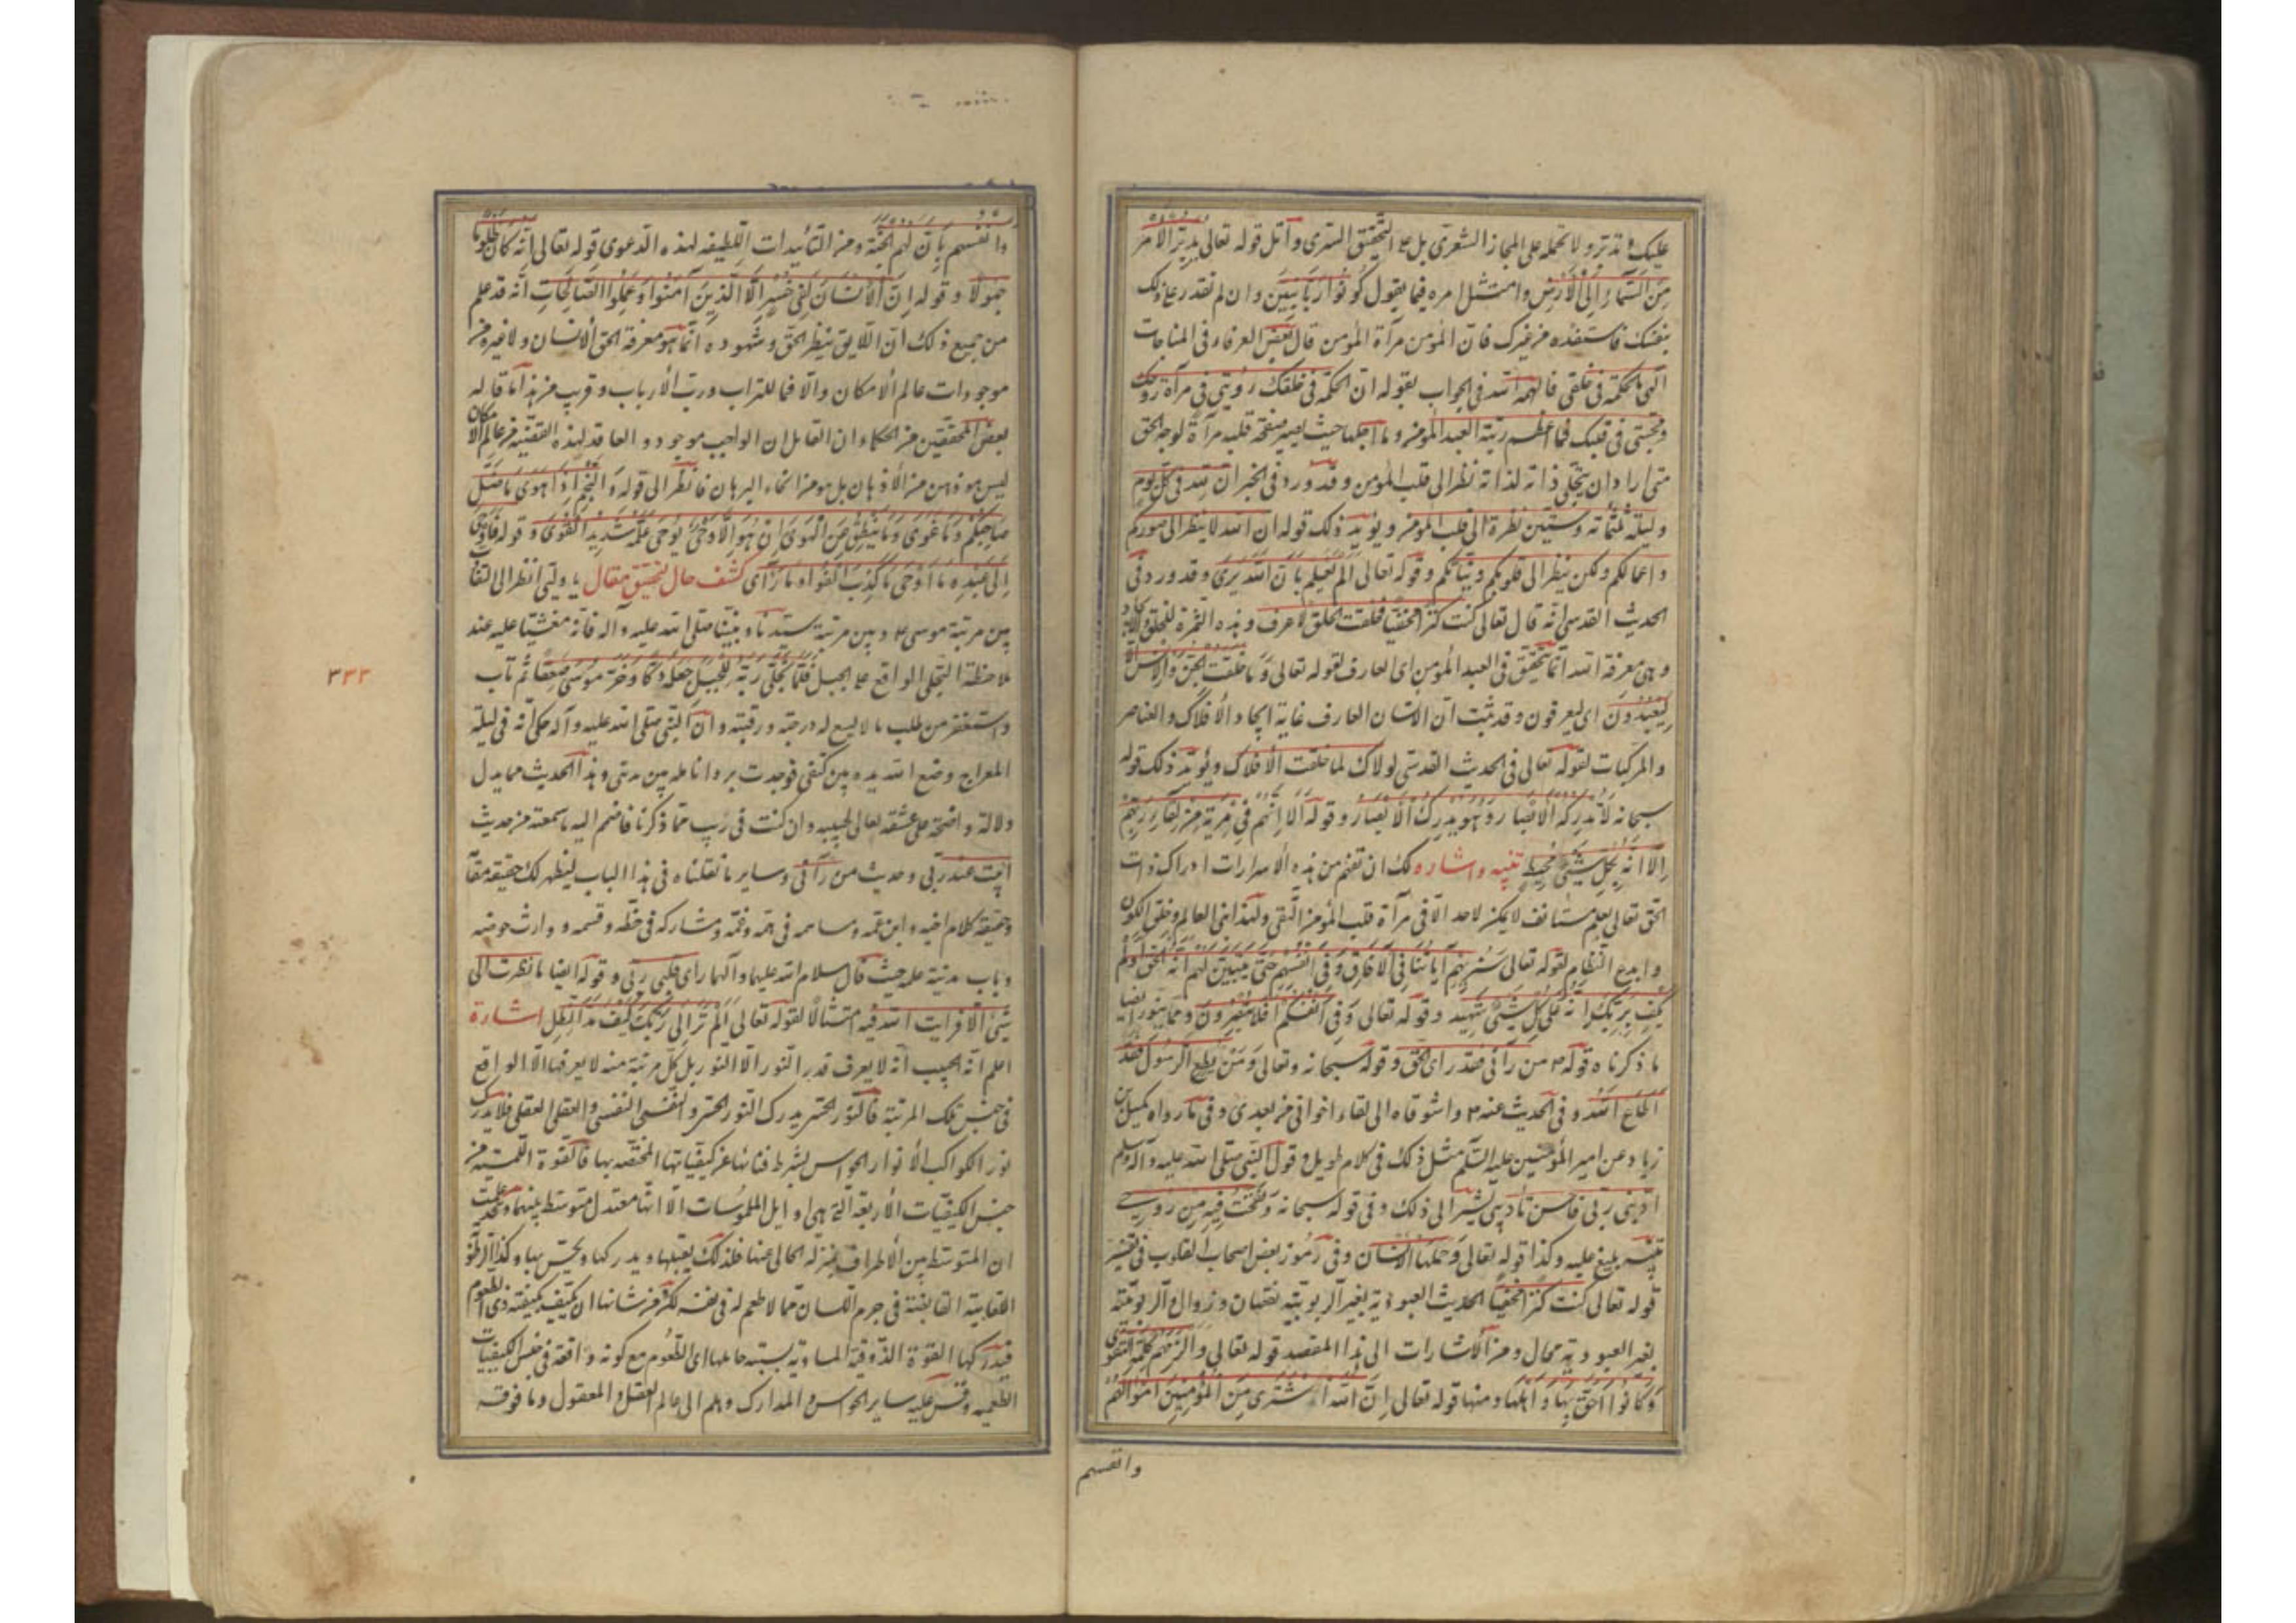 عليك فتدبر ولا تحمله على المجاز الشعرى بل على التحقيق السرى واتل قوله تعالى يُدَبِّرُ الْاَمْرَ
مِنَ السَّمَاءِ اِلَى الْاَرْضِ وامتثل امره فيما يقول كُونُوا رَبَّانِيِّينَ وان لم تقدر على ذلك
بنفسك فاستفده من غيرك فان المؤمن مرآة المؤمن قال بعض العرفاء فى المناجات
الهى ما الحكمة فى خلقى فالهمه الله فى الجواب بقوله ان الحكمة فى خلقك رؤيتى فى مرآة روحك
ومحبتى فى قلبك فما اعظم رتبة العبد المؤمن وما اجلها حيث يصير صفحة قلبه مرآة لوجه الحق
متى اراد ان يتجلى ذاته لذاته نظر الى قلب المؤمن وقد ورد فى الخبر ان لله فى كل يوم
وليلة ثلثمائة وستين نظرة الى قلب المؤمن ويؤيد ذلك قوله ان الله لا ينظر الى صوركم
واعمالكم ولكن ينظر الى قلوبكم ونياتكم وقوله تعالى الم يعلم بان الله يرى وقد ورد فى
الحديث القدسى انه قال تعالى كنت كنزا مخفيا فخلقت الخلق لاعرف وهذه الثمرة للخلق والايجاد
وهى معرفة الله انما يتحقق فى العبد المؤمن اى العارف لقوله تعالى وَمَا خلقت الجن والانس الا
ليعبدون اى ليعرفون وقد ثبت ان الانسان العارف غاية ايجاد الأفلاك والعناصر
والمركبات لقوله تعالى فى الحديث القدسى لولاك لما خلقت الأفلاك ويؤيد ذلك قوله
سبحانه لا تدركه الأبصار وهو يدرك الأبصار وقوله اَلَا اِنَّهُم فى مرية من لقاء ربهم
اَلَا اِنَّهُ بِكُلِّ شَيْءٍ مُحِيط تنبيه واشاره لك ان تفهم من هذه الاسرارات ادراك ذات
الحق تعالى بعلم مستانف لا يمكن لاحد الا فى مرآة قلب المؤمن التقى ولهذا بنى العالم وخلق الكون
وابدع النظام لقوله تعالى سنريهم آياتنا فى الآفاق وفى انفسهم حتى يتبين لهم انه الحق اولم
يكف بربك انه على كل شىء شهيد وقوله تعالى وفى انفسكم افلا تبصرون ومما ينور ايضا
ما ذكرناه قوله ص من رآنى فقد راى الحق وقوله سبحانه وتعالى ومن يطع الرسول فقد
اطاع الله وفى الحديث عنه ص واشوقاه الى لقاء اخوانى من بعدى وفى ما رواه كميل بن
زياد عن امير المؤمنين عليه السلم مثل ذلك فى كلام طويل وقول النبى صلى الله عليه وآله وسلم
ادبنى ربى فاحسن تأديبى يشير الى ذلك وفى قوله سبحانه ونفخت فيه من روحى
تنبيه بليغ عليه وكذا قوله تعالى وحملها الانسان وفى رموز بعض اصحاب القلوب فى تفسير
قوله تعالى كنت كنزا مخفيا الحديث العبودية بغير الربوبية نقصان وزوال والربوبية
بغير العبودية محال ومن الاشارات الى هذا المقصد قوله تعالى والزمهم كلمة التقوى
وكانوا احق بها واهلها ومنها قوله تعالى ان الله اشترى من المؤمنين اموالهم
وانفسهم
وانفسهم بان لهم الجنة ومن التأييدات اللطيفه لهذه الدعوى قوله تعالى انه كان ظلوما
جهولا وقوله ان الانسان لفى خسر الا الذين آمنوا وعملوا الصالحات انه قد علم
من جميع ذلك ان اللايق بنظر الحق وشهوده انما هو معرفة الحق الانسان ولا غيره من
موجودات عالم الامكان والا فما للتراب ورب الأرباب وقريب من هذا ما قاله
بعض المحققين من الحكماء ان القايل ان الواجب موجود والعاقد لهذه القضيه من عالم الامكان
ليس هو ذهن من الأذهان بل هو من انحاء البرهان فانظر الى قوله والنجم اذا هوى ما ضل
صاحبكم وما غوى وما ينطق عن الهوى ان هو الا وحى يوحى علمه شديد القوى وقوله فاوحى
الى عبده ما اوحى ما كذب الفؤاد ما راى كشف حال لتحقيق مقال يا وليى انظر الى التفاوت
بين مرتبة موسى ع وبين مرتبة سيدنا ونبينا صلى الله عليه وآله فانه مغشيا عليه عند
ملاحظة التجلى الواقع على الجبل فلما تجلى ربه للجبل جعله دكا وخر موسى صعقا ثم تاب
واستغفر من طلب ما لا يسع له درجته ورتبته وان النبى صلى الله عليه وآله حكى انه فى ليلة
المعراج وضع الله يده بين كتفى فوجدت برد انامله بين ثديى وهذا الحديث مما يدل
دلالة واضحة على عشقه تعالى لحبيبه وان كنت فى ريب مما ذكرنا فاضمم اليه ما سمعته من حديث
ابيت عند ربى وحديث من رآنى وساير ما نقلناه فى هذا الباب ليظهر لك حقيقة مقا
وحقيقة كلام اخيه وابن عمه ومساهمه فى همه وغمه ومشاركه فى حظه وقسمه ووارث حوضه
وباب مدينة علمه حيث قال سلام الله عليهما وآلهما راى قلبى ربى وقوله ايضا ما نظرت الى
شىء الا فرايت الله فيه امتثالا لقوله تعالى الم تر الى ربك كيف مد الظل اشارة
اعلم انه الحبيب انه لا يعرف قدر النور الا النور بل كل مرتبة منه لا يعرفها الا الواقع
فى جنس تلك المرتبة فالنور الحسى يدرك النور الحسى والنفسى النفسى والعقلى العقلى فلا يدرك
نور الكواكب الأنوار الحواس بشرط فنائها عن كيفياتها المختصه بها فالقوة اللمسيه من
جنس الكيفيات الأربعة التى هى اوايل الملموسات الا انها معتدل متوسط بينهما وقد علمت
ان المتوسط بين الأطراف بمنزله الخالى عنها فلذلك يقبلها ويدركها ويحس بها وكذا الرطوبة
اللعابية الفايضة فى جرم اللسان مما لا طعم له فى نفسه لكن من شانها ان يتكيف بكيفية ذى الطعوم
فيدركها القوة الذوقية المساوية نسبته حاملها اى الطعوم مع كونه واقعة فى جنس الكيفيات
الطعميه وقس عليه ساير الحواس والمدارك وهلم الى عالم العقل والمعقول وما فوقه
٣٣٣